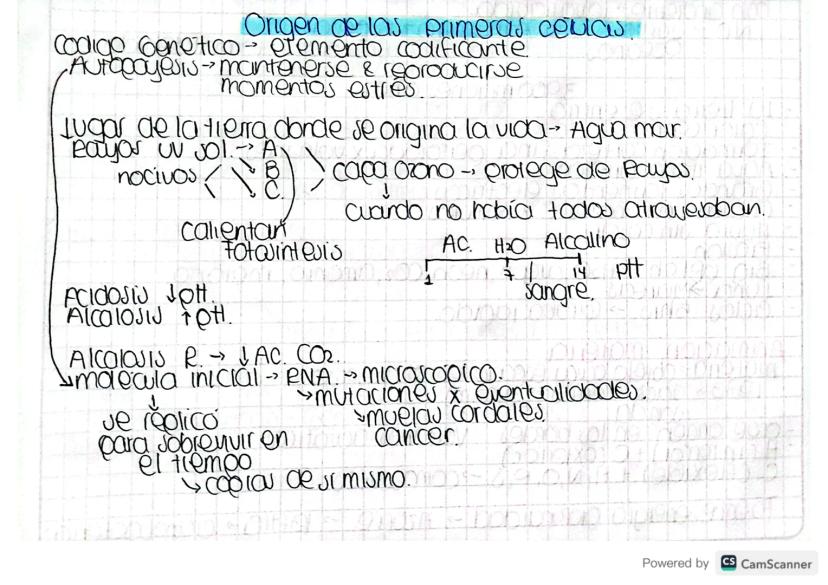 Origen de las primeras células.
Codigo Genético → elemento codificante
Autopoyesis → mantenerse & reproducirse
momentos estrés.
Lugar de la tierra donde se origina la vida → Agua mar.
Rayos UV sol. → A
nocivos B capa ozono → protege de Rayos.
C ↓
cuando no había todos atravesaban.
calientan
fotosintesis
AC. H2O Alcalino
1 7 14 pH
sangre.
Acidosis ↓pH.
Alcalosis ↑pH.
Alcalosis R. → ↓ AC. CO2.
molécula inicial → RNA. → microscopico.
↓ ↘ mutaciones x eventualidades.
se replicó ↘ muelas cordales
para sobrevivir en cancer.
el tiempo
↘ copias de si mismo.
Powered by CS CamScanner